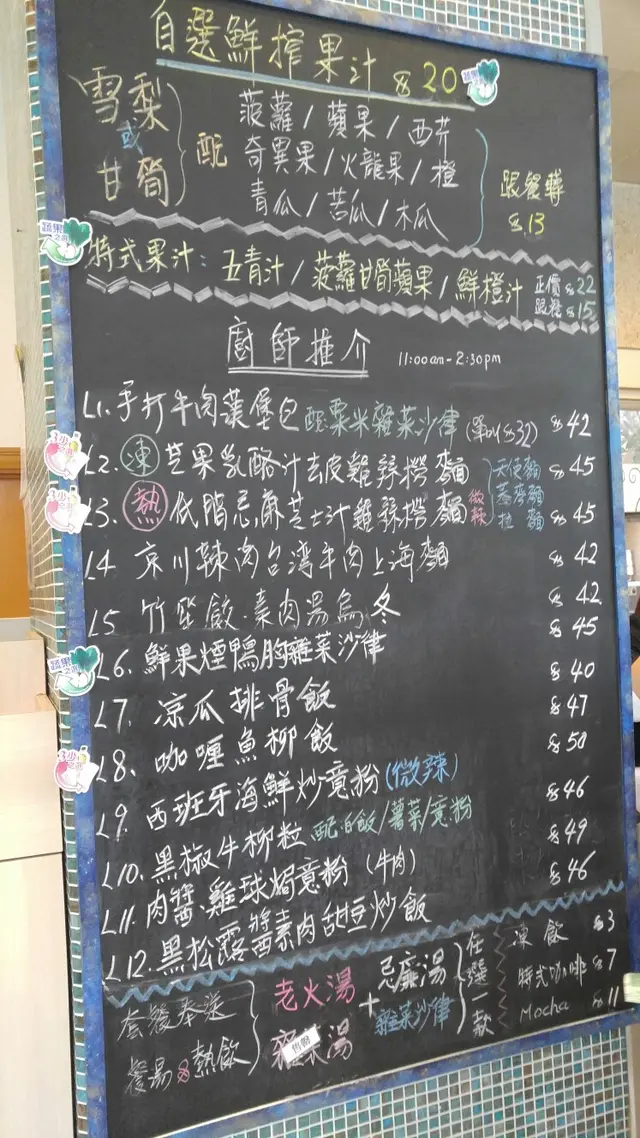 自選鮮搾果汁 $20
雪梨 或 甘筍 配
菠蘿/蘋果/西芹
奇異果/火龍果/橙
青瓜/苦瓜/木瓜
跟餐尊
$13
特式果汁: 五青汁/菠蘿甘筍蘋果/鮮橙汁 正價$22
跟餐$15
廚師推介 11:00am-2:30pm
L1. 手打牛肉漢堡包 配粟米雜菜沙律 (單叫$32) $42
L2. 凍 芒果乳酪汁去皮雞絲撈麵 $45
L3. 熱 低脂忌廉芝士汁雞絲撈麵 微辣 $45
天使麵
蕎麥麵
拉麵
L4 京川辣肉台湾牛肉上海麵 $42
L5 竹笙餃·素肉湯烏冬 $42
L6. 鮮果煙鴨胸雜菜沙律 $45
L7. 凉瓜排骨飯 $40
L8. 咖喱魚柳飯 $47
L9. 西班牙海鮮炒意粉(微辣) $50
L10. 黑椒牛柳粒 配白飯/薯菜/意粉 $46
L11. 肉醬雞球焗意粉 (牛肉) $49
L12. 黑松露醬素肉甜豆炒飯 $46
套餐奉送
餐湯&熱飲
老火湯
雜菜湯
售罄
+
忌廉湯
雜菜沙律
任選一款
凍飲 $3
特式咖啡 $7
Mocha $11
蔬果之選
3少之選
3少之選
蔬果之選
3少之選